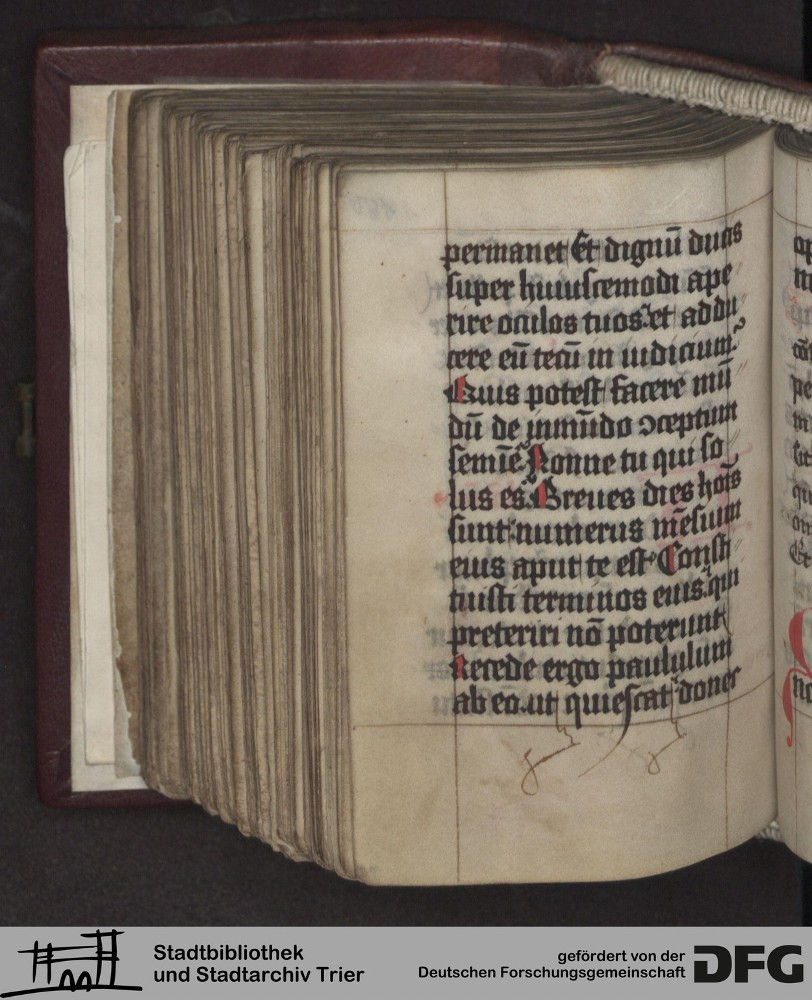 permanet Et dignū ducis
super huiuscemodi ape
rire oculos tuos. et addu
cere eū tecū in iudicium.
Quis potest facere mū
dū de inmūdo ɔceptum
semīe. Nonne tu qui so
lus es. Breues dies hoīs
sunt. numerus mēsium
eius aput te est. Consti
tuisti terminos eius. qui
preteriri nō poterunt
Recede ergo paululum
ab eo. ut quiescat donec
Stadtbibliothek
und Stadtarchiv Trier
gefördert von der
Deutschen Forschungsgemeinschaft
DFG